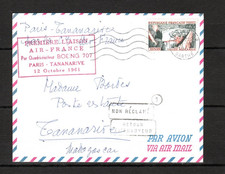 Paris - Tananarive
PREMIÈRE LIAISON
AIR - FRANCE
Par Quadriréacteur BOEING 707
PARIS - TANANARIVE
12 Octobre 1961
Madame
Poste restante
NON RÉCLAMÉ
RETOUR
Tananarive
Madagascar
PAR AVION
VIA AIR MAIL